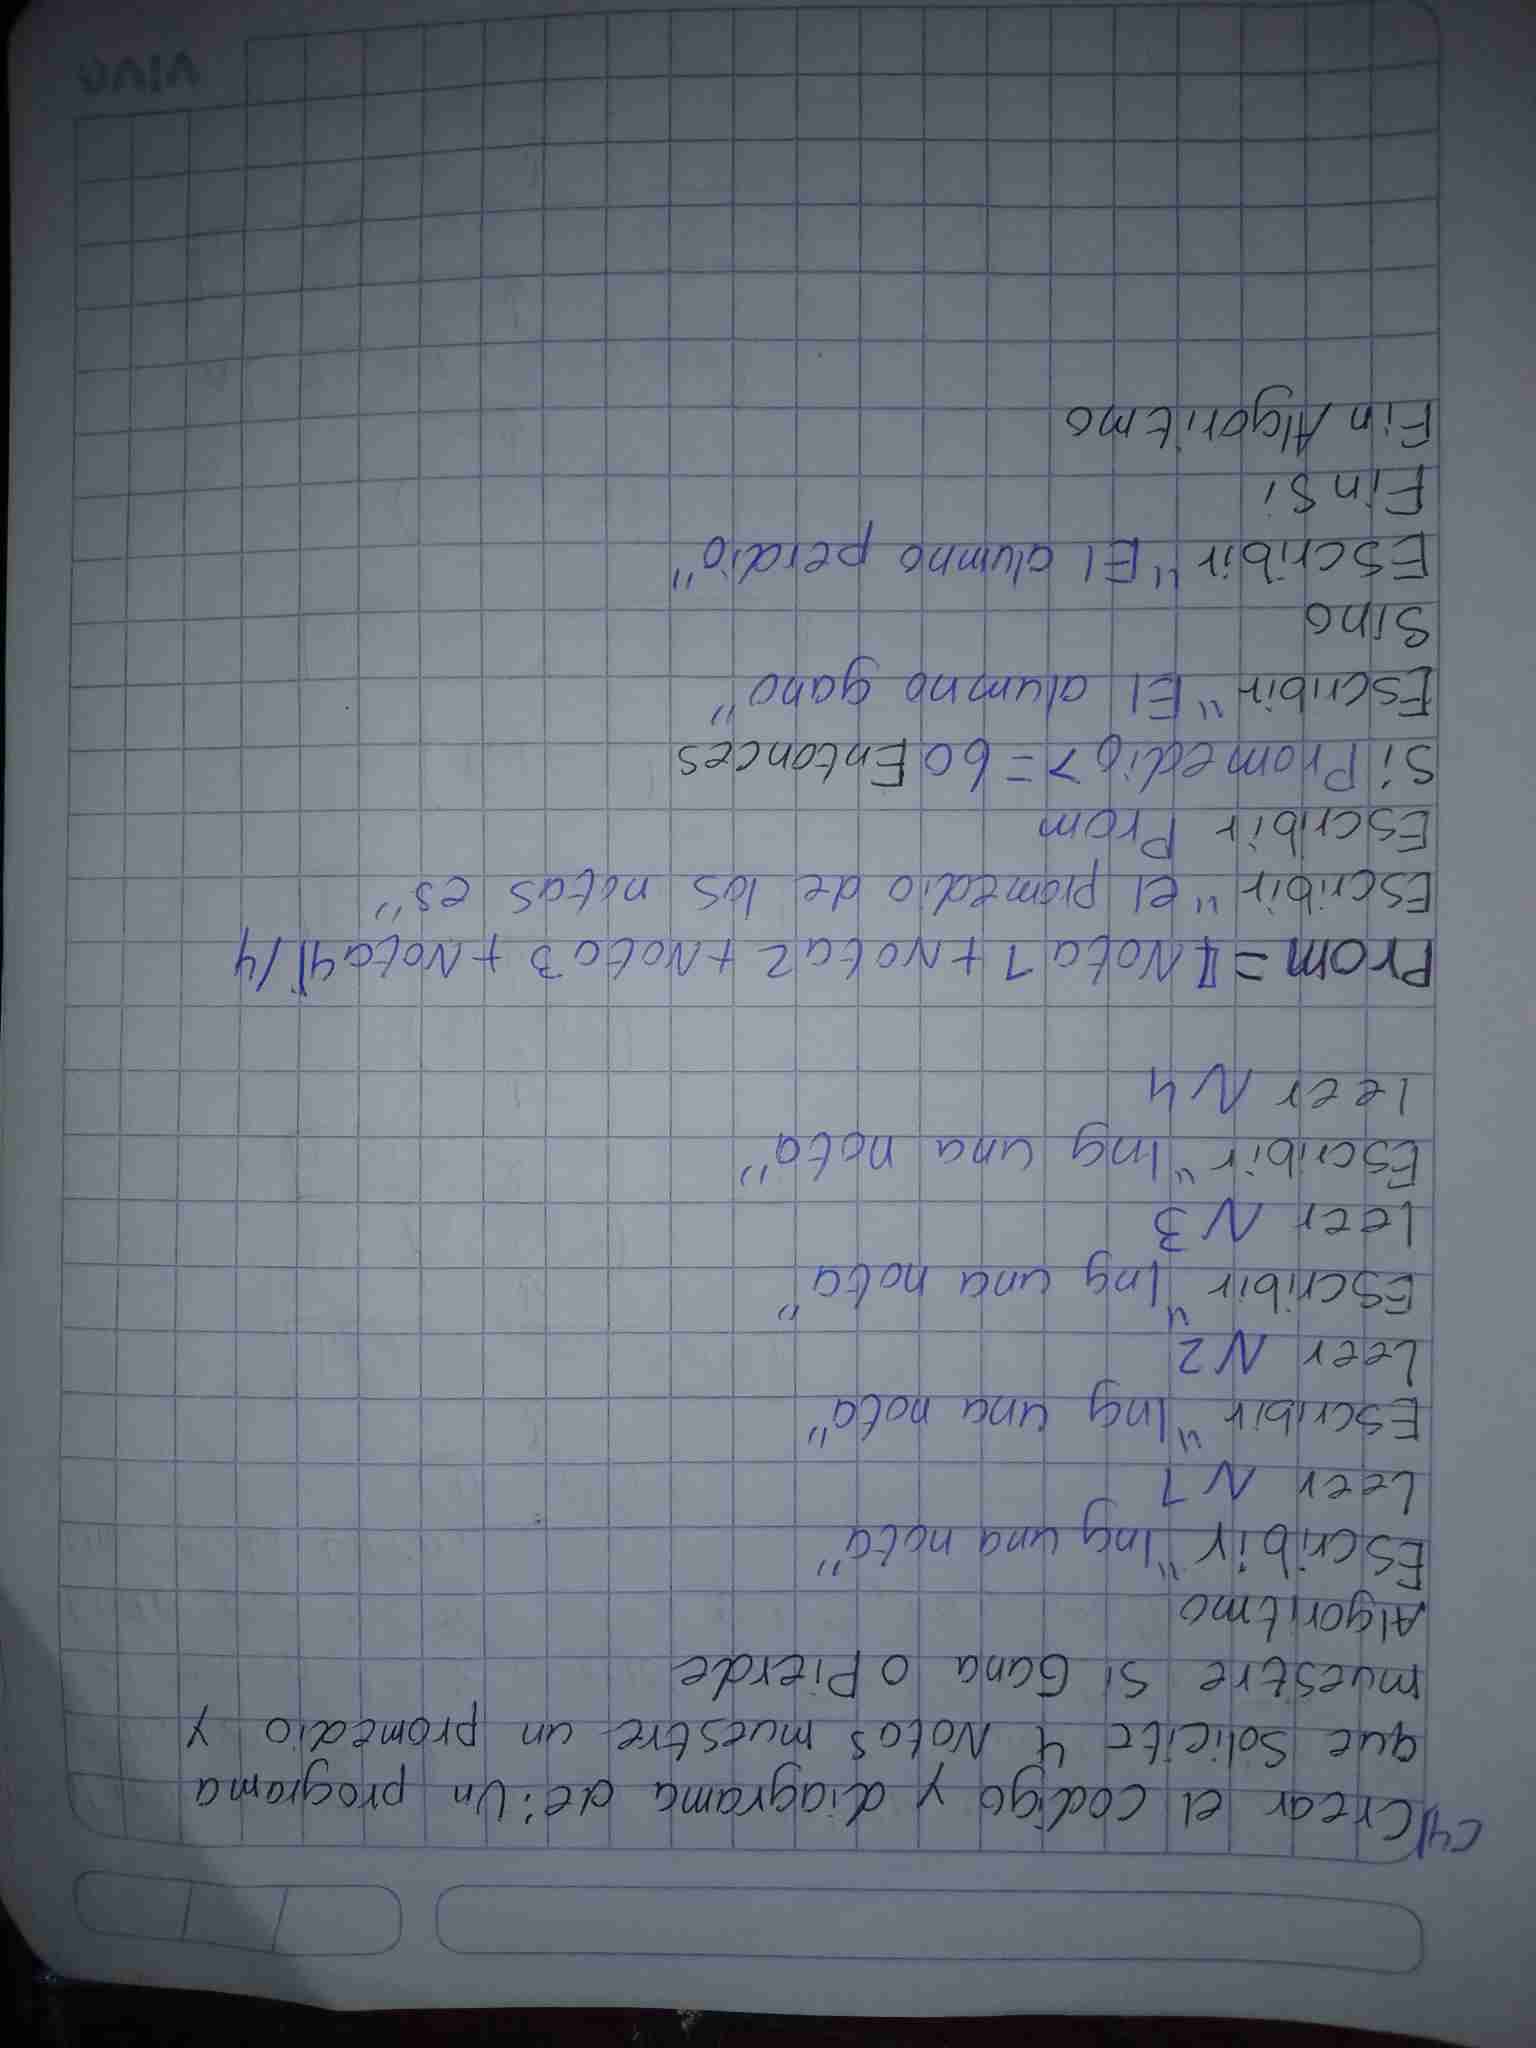 C4) Crear el codigo y diagrama de: Un programa
que solicite 4 Notas muestre un promedio y
muestre si Gana o Pierde
Algoritmo
Escribir "Ing una nota"
Leer N1
Escribir "Ing una nota"
Leer N2
Escribir "Ing una nota"
Leer N3
Escribir "Ing una nota"
Leer N4
Prom = [Nota1+Nota2+Nota3+Nota4]/4
Escribir "el promedio de las notas es"
Escribir Prom
Si Promedio >= 60 Entonces
Escribir "El alumno gano"
Sino
Escribir "El alumno perdio"
Fin si
Fin Algoritmo